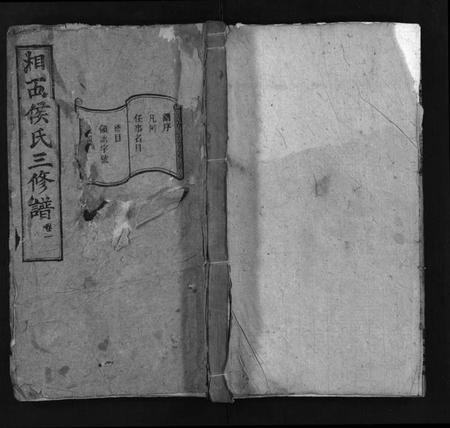 湘西侯氏三修譜 卷一
譜序
凡例
任事名目
總目
領譜字號